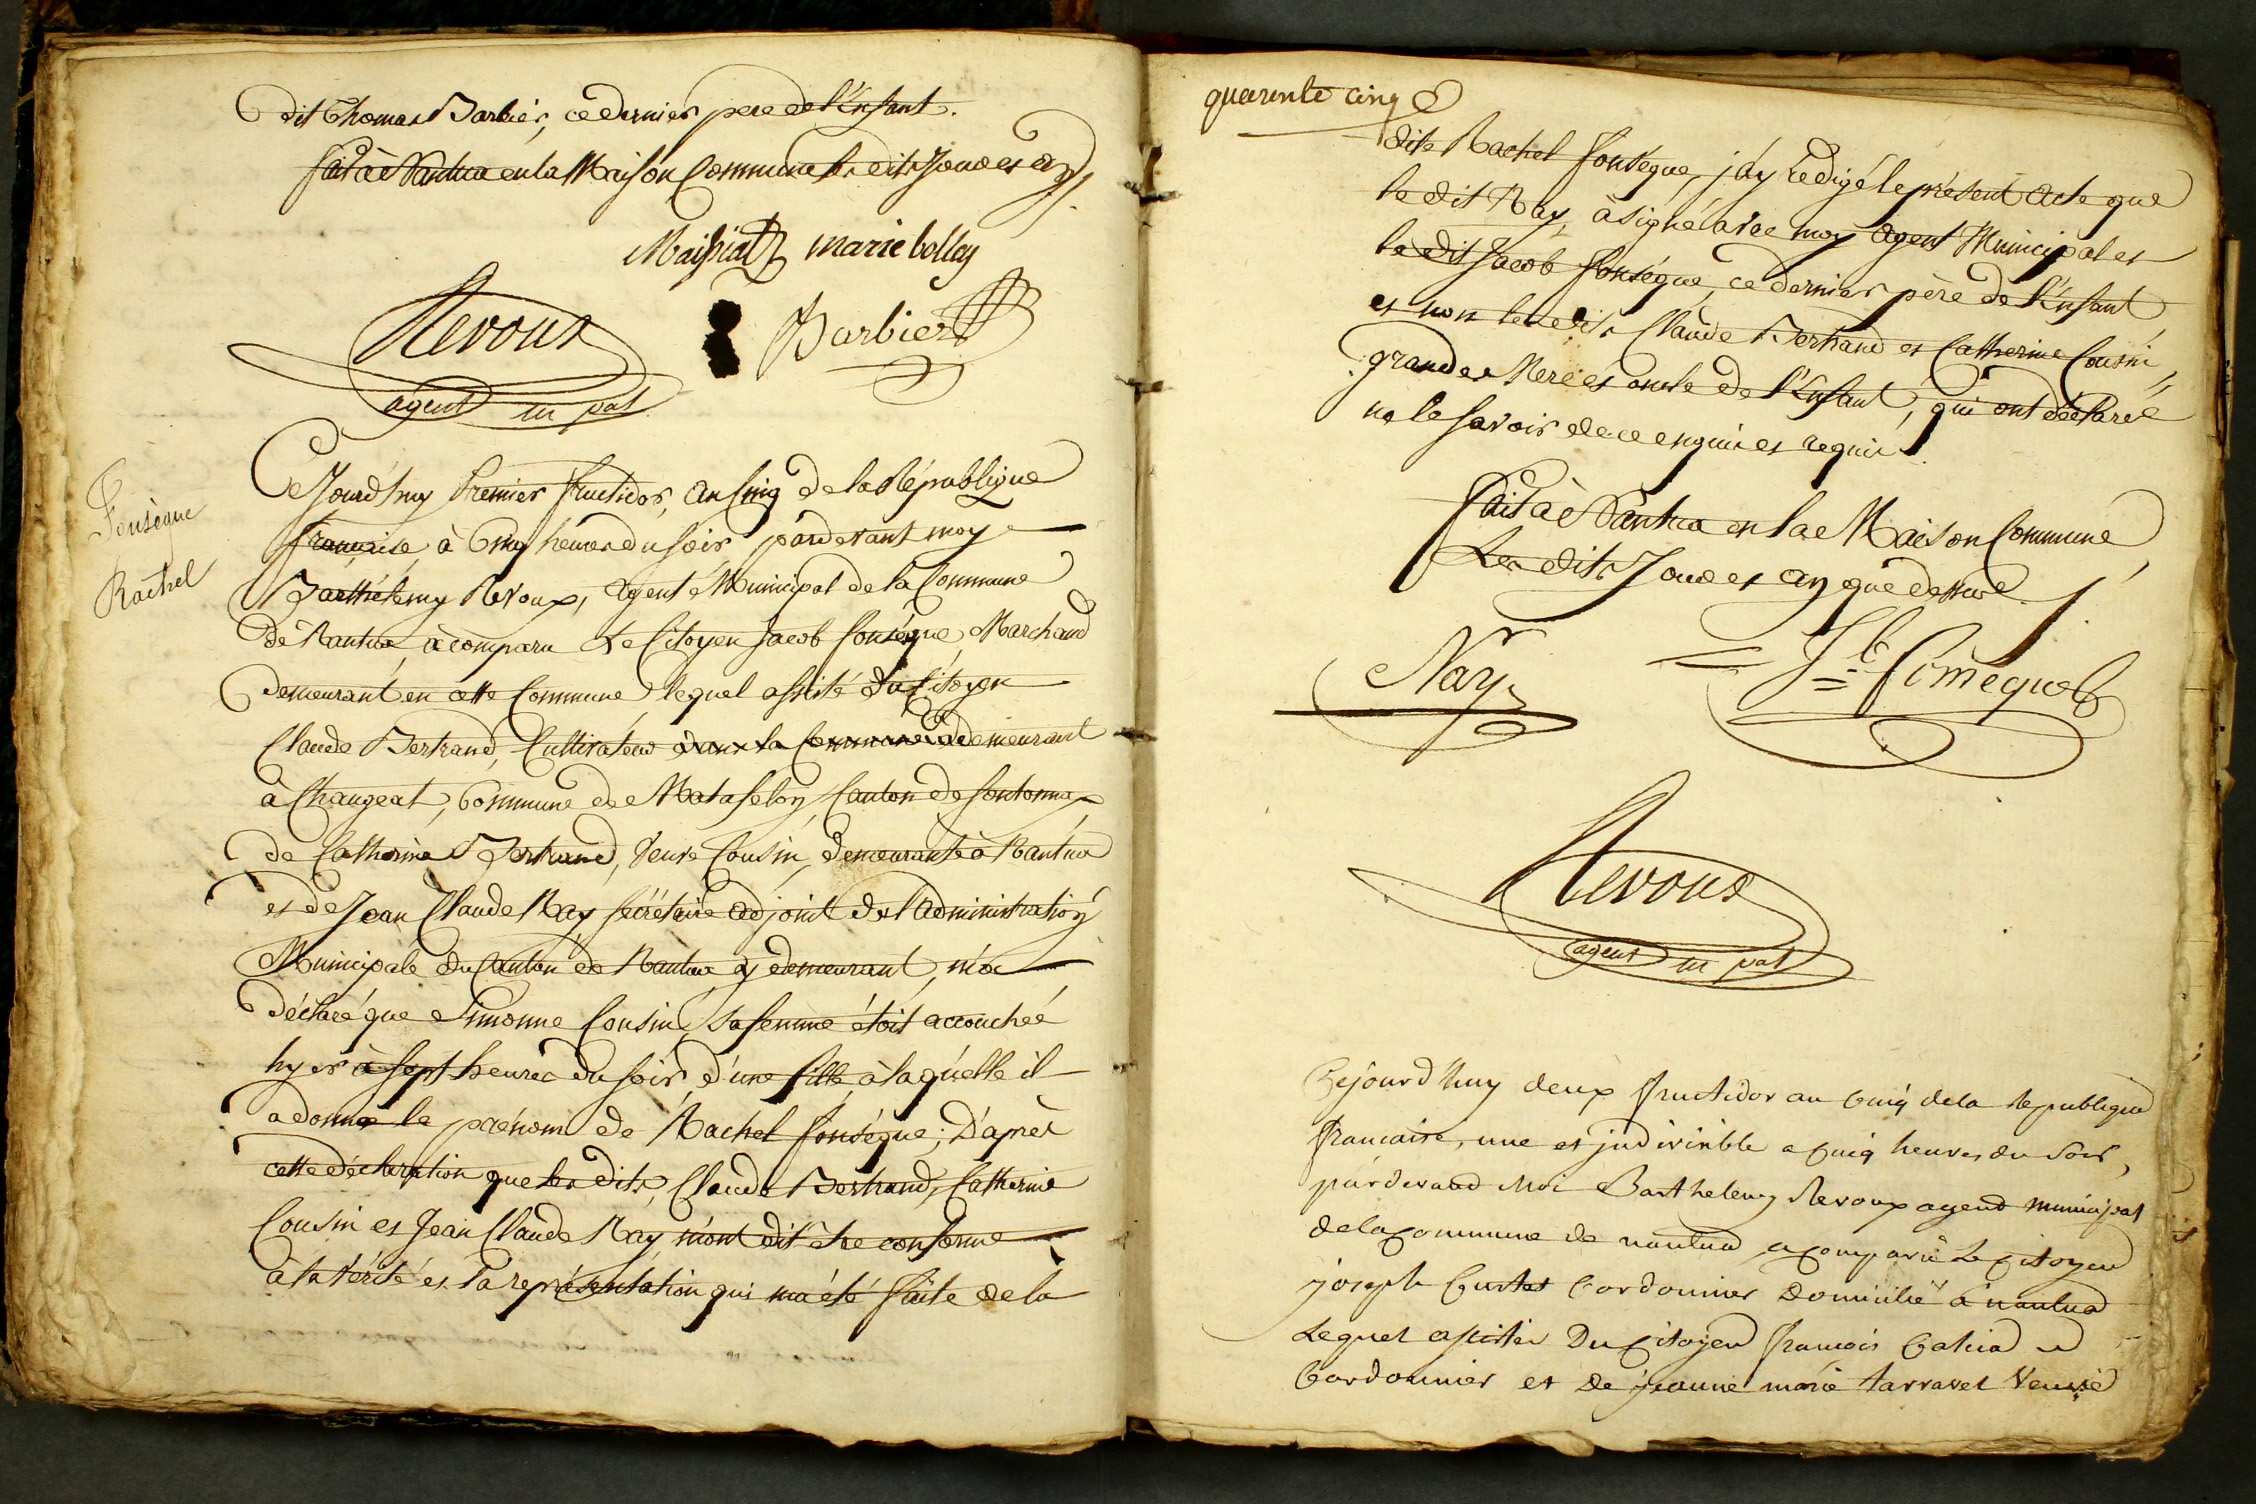 dit Thomas Barbier, ce dernier pere de l'Enfant.
fait à Nantua en la Maison Commune les dits Jour et an
Maissiat marie bolley
Revoux Barbier
agent m pal
Fonseque
Rachel
Cejourd'huy Premier fructidor, an Cinq de la République
française à Cinq heures du soir, pardevant moy
Barthélemy Revoux, agent Municipal de la Commune
de Nantua, a comparu Le Citoyen Jacob fonséque, Marchand
demeurant en cette Commune lequel assisté du Citoyen
Claude Bertrand, Cultivateur dans la Commune demeurant
à Changeat, Commune de Matafelon, Canton de sontonnax
de Catherine Bertrand, Veuve Cousin, demeurante à Nantua
et de Jean Claude Nay, secrétaire adjoint de l'administration
Municipale du Canton de Nantua y demeurant, m'a
déclaré que Simonne Cousin, sa femme étoit accouchée
hyer à sept heures du soir, d'une fille, à laquelle il
a donné le prénom de Rachel fonségue; D'après
cette déclaration que les dits, Claude Bertrand, Catherine
Cousin et Jean Claude Nay, m'ont dit être conforme
à la vérité et la représentation qui m'a été faite de la
quarente cinq
dite Rachel fonségue, j'ay rédigé le présent acte que
le dit Nay, à signé avec moy agent Municipal et
le dit Jacob fonségue, ce dernier père de l'Enfant
et non les dits Claude Bertrand et Catherine Cousin,
grande Mere et oncle de l'Enfant, qui ont déclaré
ne le savoir de ce enquis et requis
fait à Nantua en la Maison Commune
Les dits Jour et an que dessus
Nay
Revoux
agent m pal
Cejourd'huy deux fructidor an Cinq de la republique
francaise, une et indivisible a Cinq heures du soir,
pardevand Moi Barthelemy Revoux agend municipal
de la Commune de nantua a comparu Le Citoyen
joseph Curtet Cordonnier domicilié a nantua
Lequel assistée Du Citoyen francois
Cordonnier et De jeanne marie tarravel Veuve